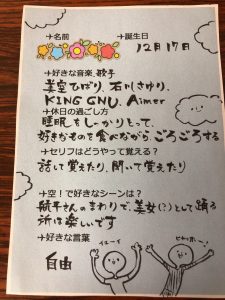 →名前 →誕生日
12月17日
→好きな音楽、歌手
美空ひばり、石川さゆり、
KING GNU、Aimer
→休日の過ごし方
睡眠をしーかりとって、
好きなものを食べながら、ごろごろする
→セリフはどうやって覚える？
話して覚えたり、聞いて覚えたり
→空！で好きなシーンは？
航平さんのまわりで、美女(?)として踊る
所は楽しいです
→好きな言葉
自由
イエーイ
ヒャッホー！